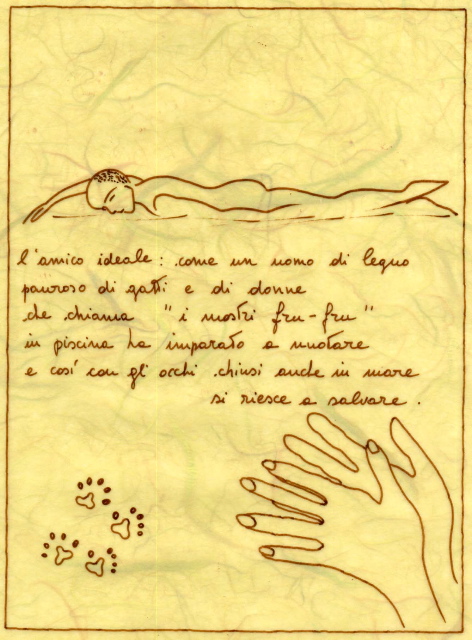 l'amico ideale: come un uomo di legno
pauroso di gatti e di donne
che chiama "i mostri fru-fru"
in piscina ha imparato a nuotare
e cosí con gli occhi chiusi anche in mare
si riesce a salvare.